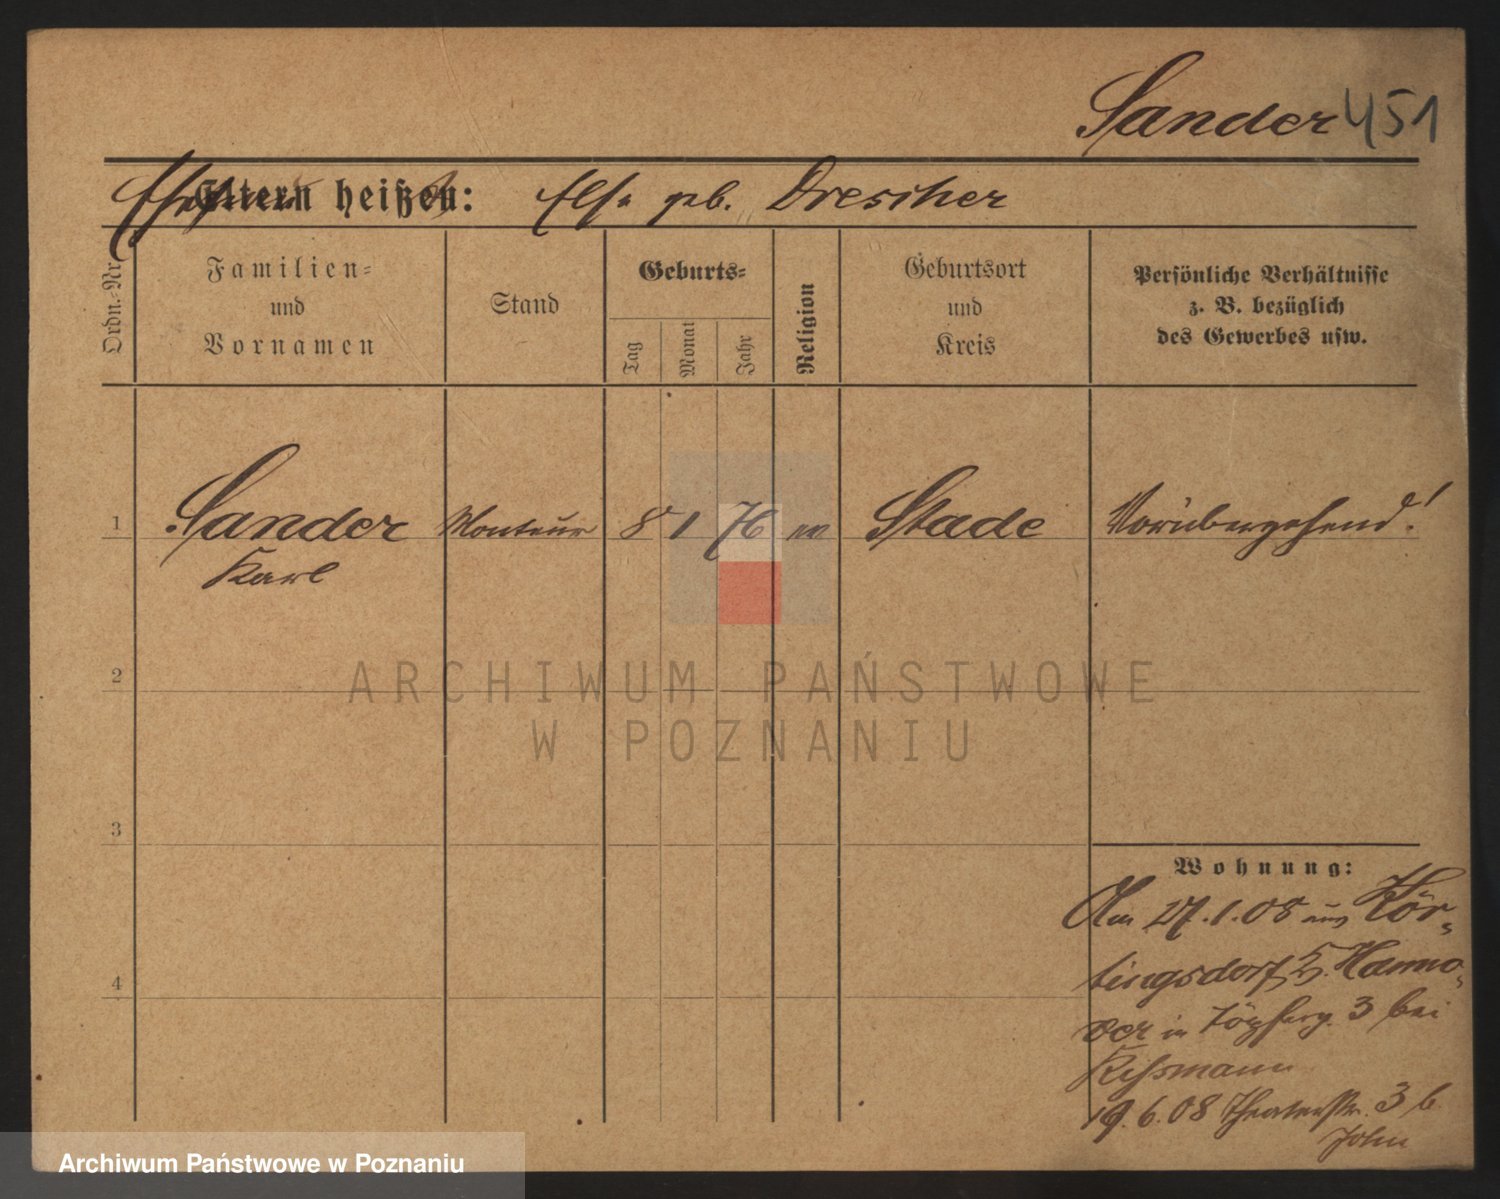 Sander 451
Eltern heißen: Else geb. Drescher
Ordn.-Nr.
Familien-
und
Vornamen
Stand
Geburts-
Tag
Monat
Jahr
Religion
Geburtsort
und
Kreis
Persönliche Verhältnisse
z. B. bezüglich
des Gewerbes usw.
1 Sander Monteur 8 1 76 Stade Vorübergehend!
Karl
2
3
4
Wohnung:
Am 27.1.08 aus Kör-
tingsdorf b. Hanno-
ver in Töpferg. 3 bei
Kissmann
19.6.08 Theaterstr. 3 b
John
ARCHIWUM PAŃSTWOWE
W POZNANIU
Archiwum Państwowe w Poznaniu